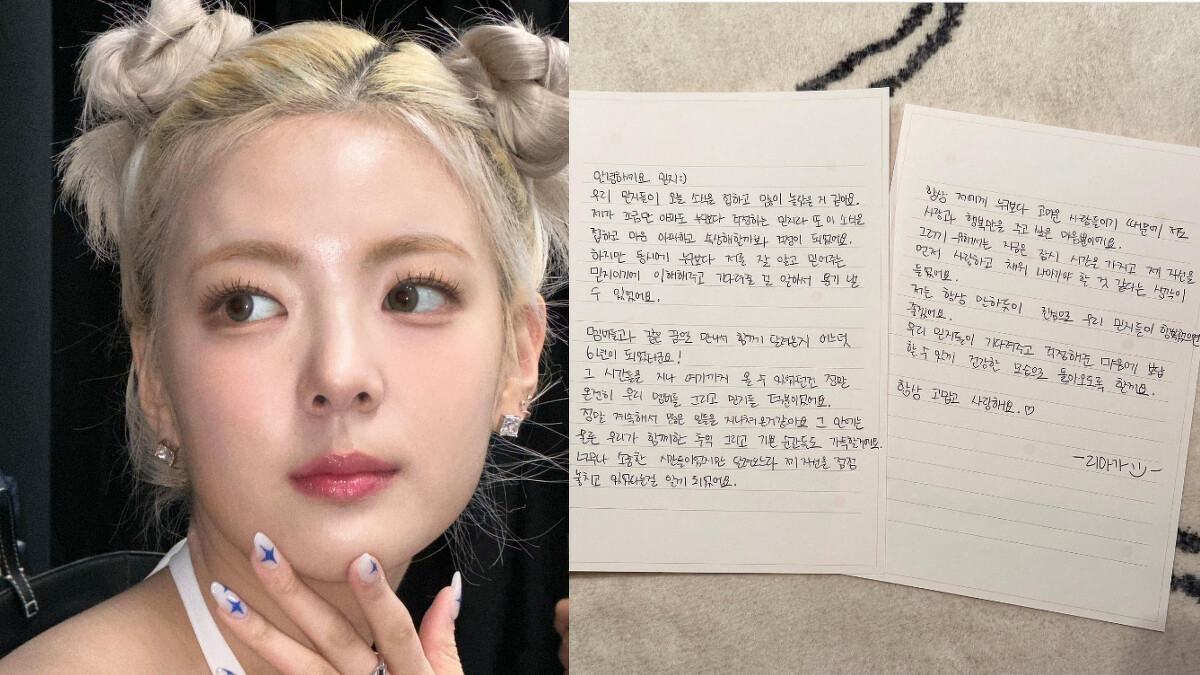 안녕하세요 믿지:)
우리 믿지들이 오늘 소식을 접하고 많이 놀랐을 거 같아요.
제가 조금만 아파도 누구보다 걱정하는 믿지라 또 이 소식을
접하고 마음 아파하고 속상해할까봐 걱정이 되었어요.
하지만 동시에 누구보다 저를 잘 알고 믿어주는
믿지이기에 이해해주고 기다려줄 걸 알아서 용기 낼
수 있었어요.
멤버들과 같은 꿈으로 만나서 함께 달려온지 어느덧
6년이 되었더라구요!
그 시간들을 지나 여기까지 올 수 있었던건 정말
온전히 우리 멤버들 그리고 믿지들 덕분이었어요.
정말 계속해서 많은 일들을 지나쳐온거같아요 그 안에는
물론 우리가 함께한 추억 그리고 기쁜 순간들도 가득할거에요.
너무나 소중한 시간들이었지만 달려오느라 제 자신을 점점
놓치고 있었다는걸 알게 되었어요.
항상 저에게 누구보다 고마운 사람들이기 때문에 저도
사랑과 행복만을 주고 싶은 마음뿐이에요.
그러기 위해서는 지금은 잠시 시간을 가지고 제 자신을
먼저 사랑하고 채워 나가야 할 것 같다는 생각이
들었어요.
저는 항상 진심으로 우리 믿지들이 행복했으면
좋겠어요.
우리 믿지들이 기다려주고 걱정해준 마음에 보답
할 수 있게 건강한 모습으로 돌아오도록 할게요.
항상 고맙고 사랑해요.♡
-리아가-